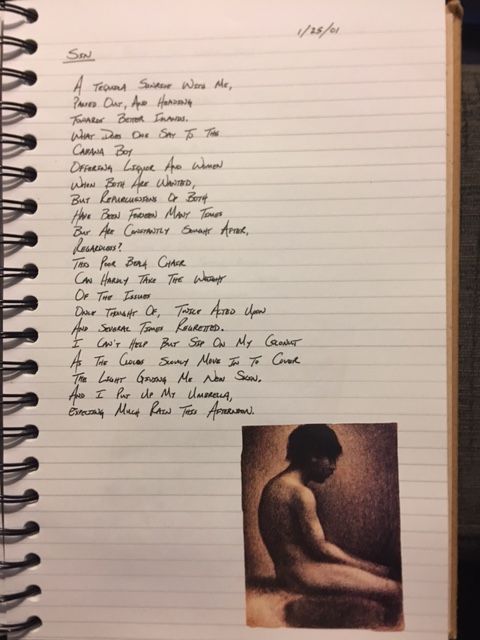 1/25/01
Sin
A Tequila Sunrise With Me,
Passed Out, And Heading
Towards Better Islands.
What Does One Say To The
Cabana Boy
Offering Liquor And Women
When Both Are Wanted,
But Repurcussions Of Both
Have Been Foreseen Many Times
But Are Constantly Sought After,
Regardless?
This Poor Beach Chair
Can Hardly Take The Weight
Of The Issues
Once Thought Of, Twice Acted Upon
And Several Times Regretted.
I Can't Help But Sip On My Coconut
As The Clouds Slowly Move In To Cover
The Light Giving Me New Skin.
And I Put Up My Umbrella,
Expecting Much Rain This Afternoon.